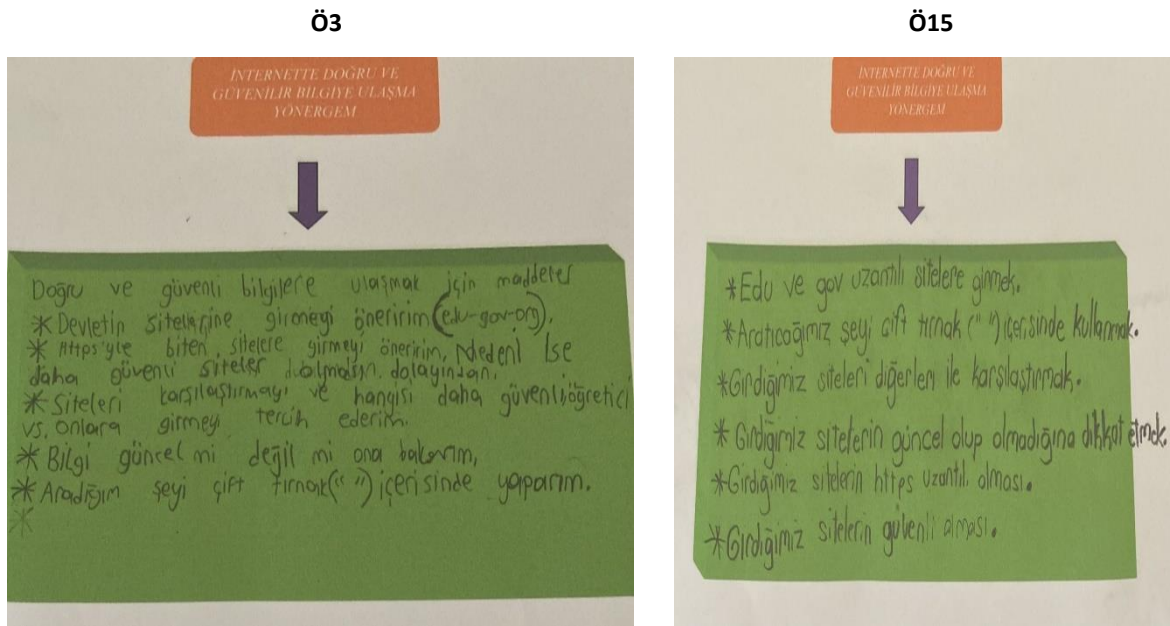 Ö3
İNTERNETTE DOĞRU VE
GÜVENİLİR BİLGİYE ULAŞMA
YÖNERGEM
Doğru ve güvenli bilgilere ulaşmak için maddeler
* Devletin sitelerine girmeyi öneririm (edu-gov-org).
* Https'yle biten sitelere girmeyi öneririm, Nedeni ise
daha güvenli siteler dolayından,
* Siteleri karşılaştırmayı ve hangisi daha güvenli, öğretici
vs. onlara girmeyi tercih ederim.
* Bilgi güncel mi değil mi ona bakarım,
* Aradığım şeyi çift tırnak(" ") içerisinde yaparım.
*
Ö15
İNTERNETTE DOĞRU VE
GÜVENİLİR BİLGİYE ULAŞMA
YÖNERGEM
* Edu ve gov uzantılı sitelere girmek.
* Aratıcağımız şeyi çift tırnak (" ") içersinde kullanmak.
* Girdiğimiz siteleri diğerleri ile karşılaştırmak.
* Girdiğimiz sitelerin güncel olup olmadığına dikkat etmek.
* Girdiğimiz sitelerin https uzantılı olması.
* Girdiğimiz sitelerin güvenli olması.